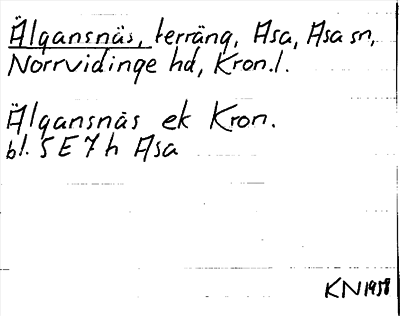 Älgansnäs, terräng, Asa, Asa sn,
Norrvidinge hd, Kron.l.
Älgansnäs ek Kron.
bl. 5E7h Asa
KN 1958